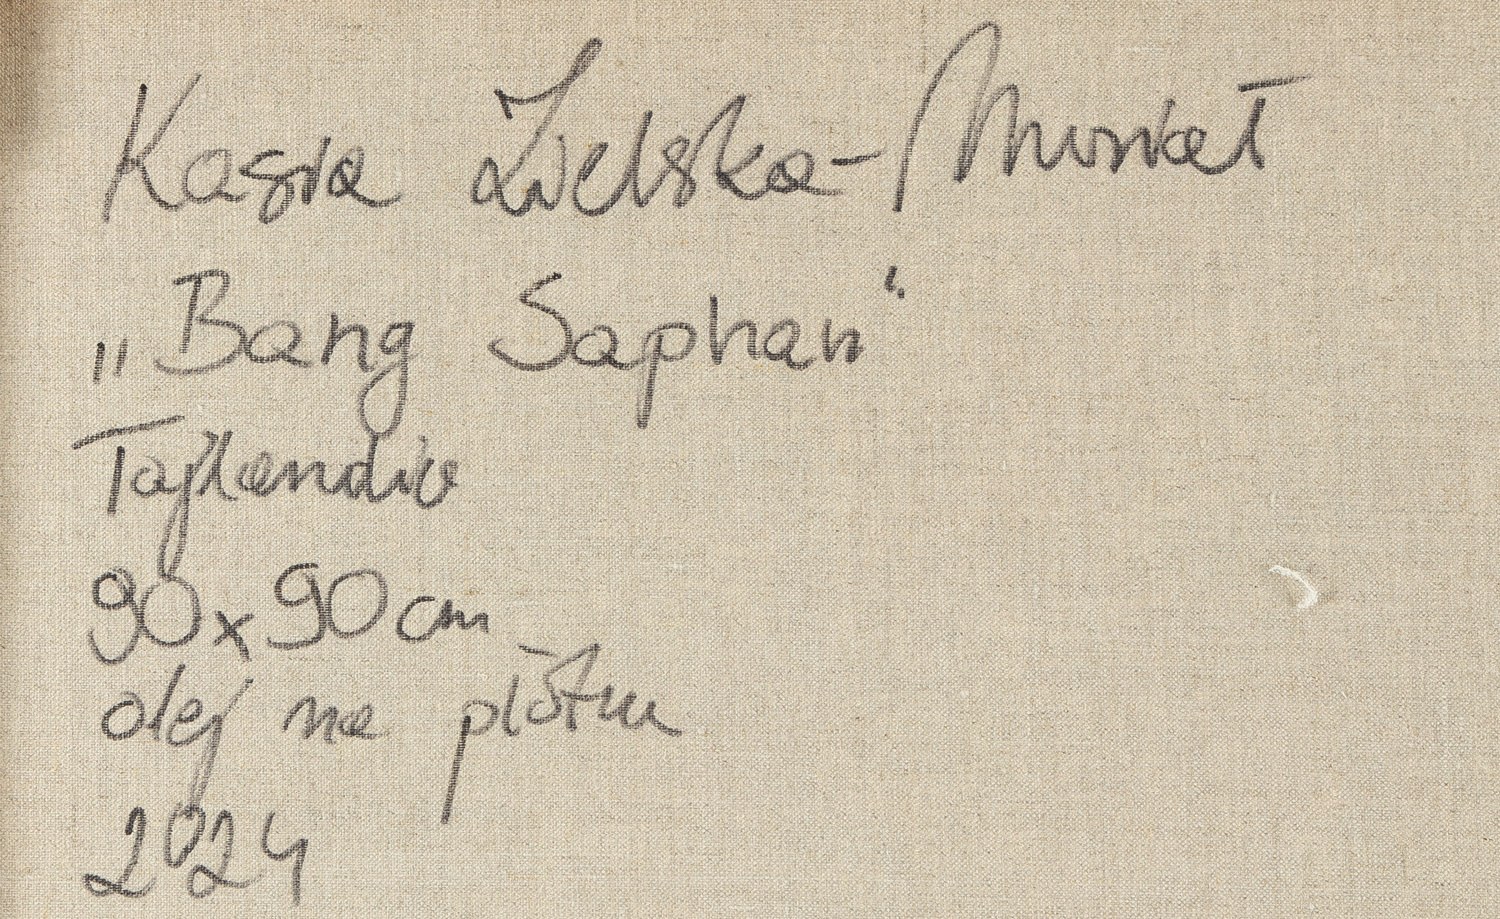 Kasia
„Bang Saphan"
Tajlandia
90x90 cm
olej na płótnie
2024